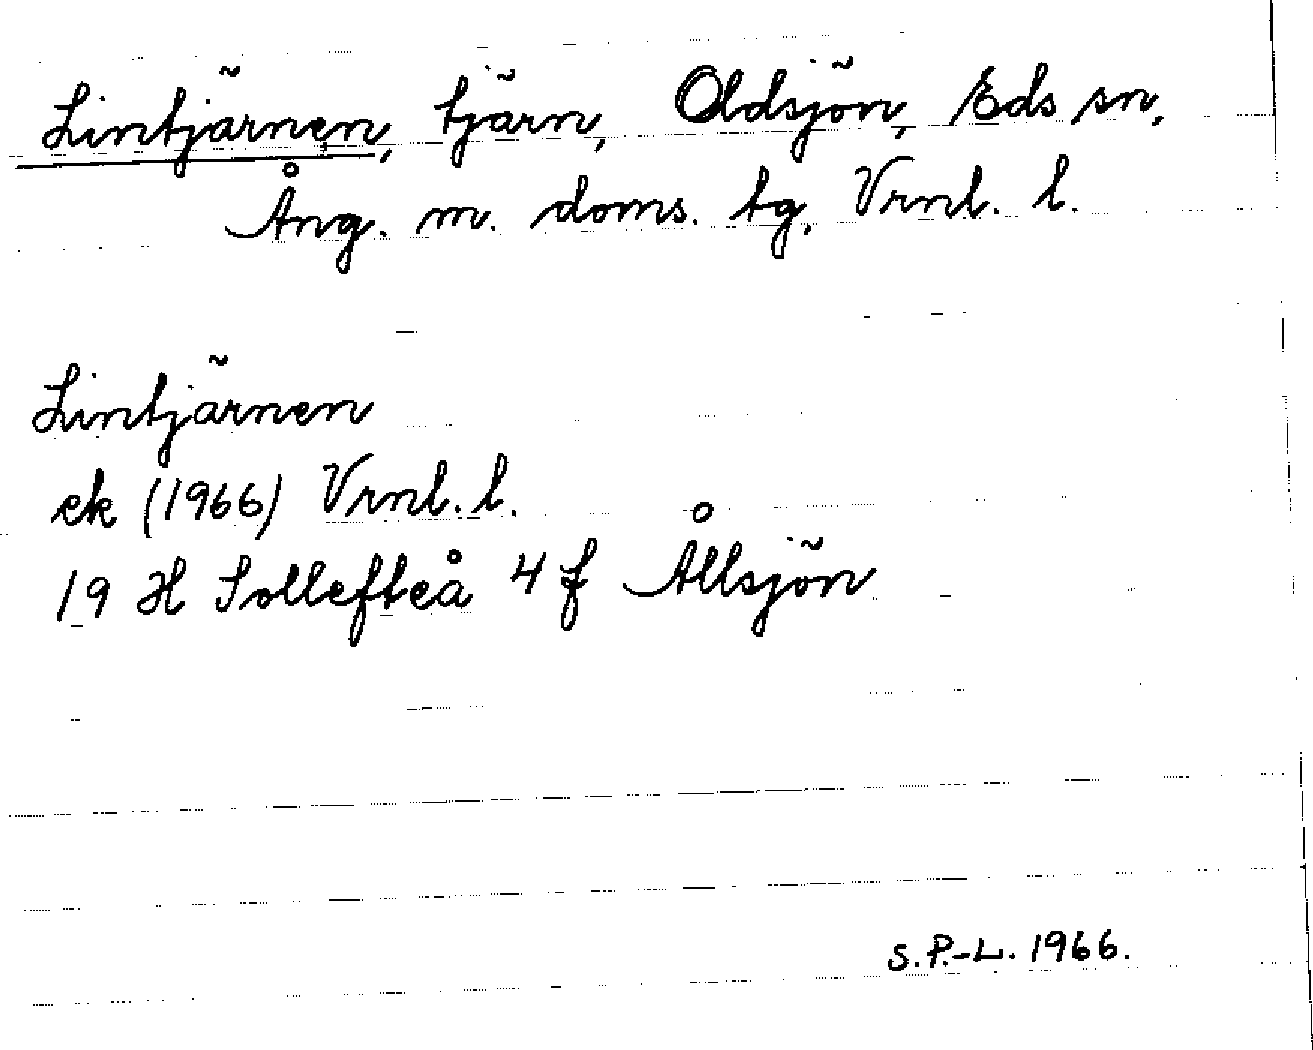 Lintjärnen, tjärn, Oldsjön, Eds sn,
Ång. m. doms. tg, Vrnl. l.
Lintjärnen
ek (1966) Vrnl. l.
19 H Sollefteå 4 f Ållsjön
S.P.-L. 1966.